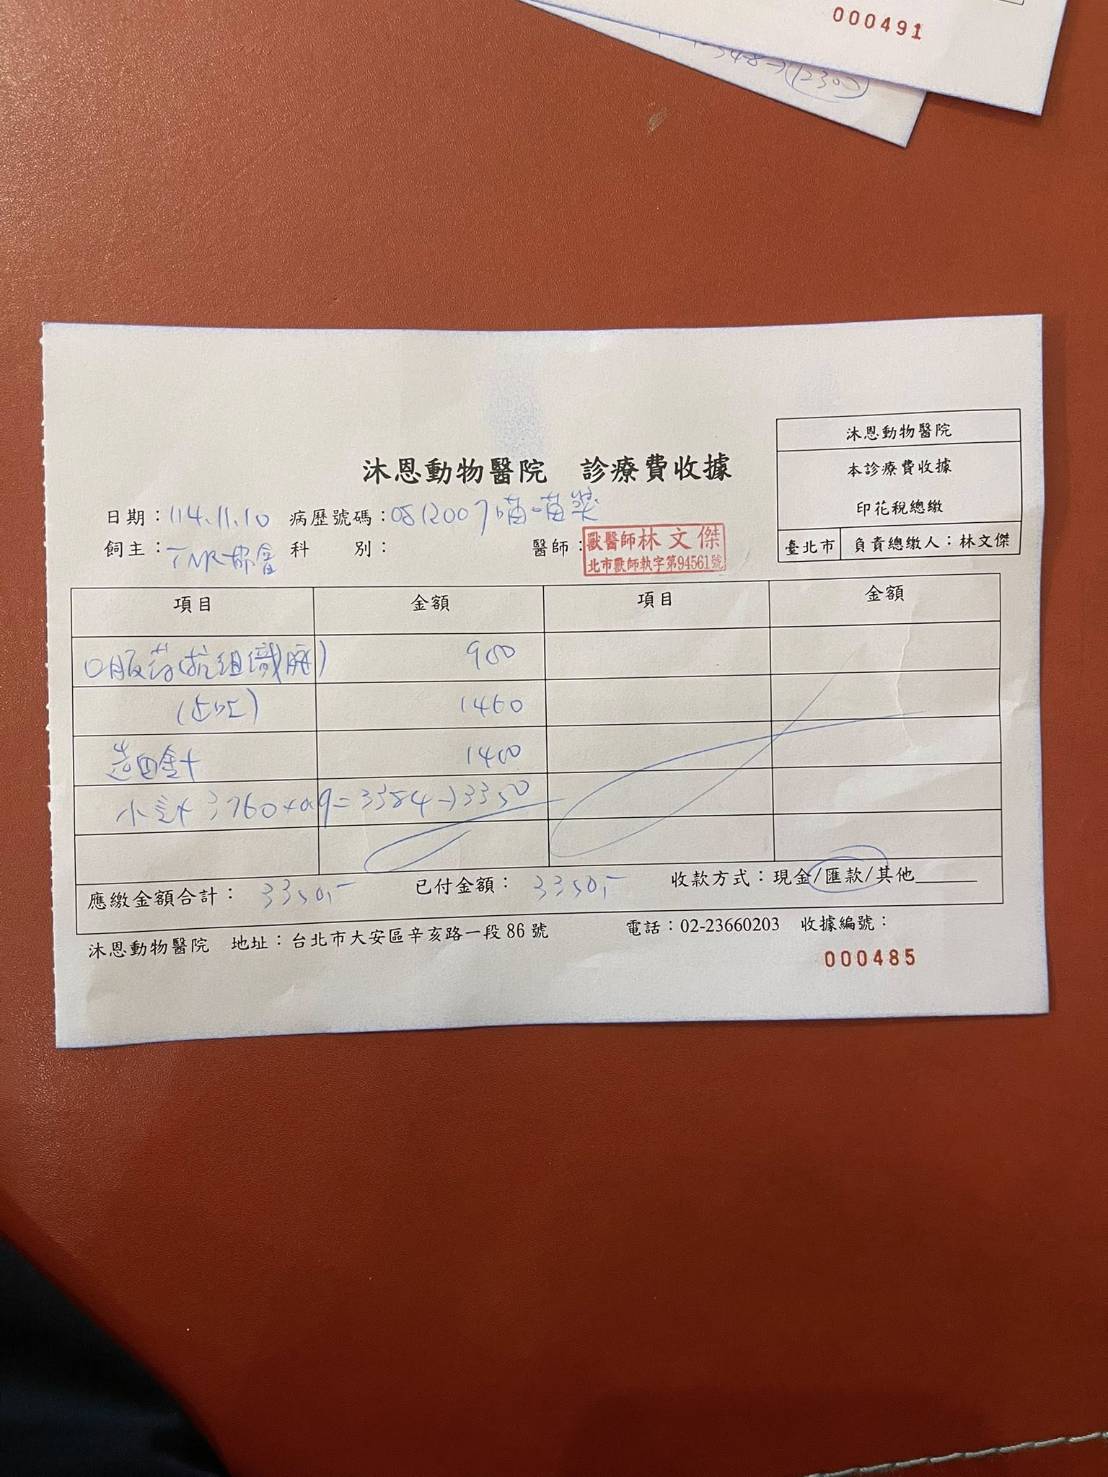 000491
348→2300
沐恩動物醫院
本診療費收據
印花稅總繳
臺北市 負責總繳人：林文傑
沐恩動物醫院 診療費收據
日期：114.11.10 病歷號碼：0812007喵喵獎
飼主：TNR協會 科 別： 醫師：
獸醫師林文傑
北市獸師執字第94561號
項目 金額 項目 金額
口服药(抗組織胺) 900
1460
造血針 1400
小計 3760×0.9=3384→3350
應繳金額合計：3350,- 已付金額：3350,- 收款方式：現金/匯款/其他
沐恩動物醫院 地址：台北市大安區辛亥路一段86號 電話：02-23660203 收據編號：
000485